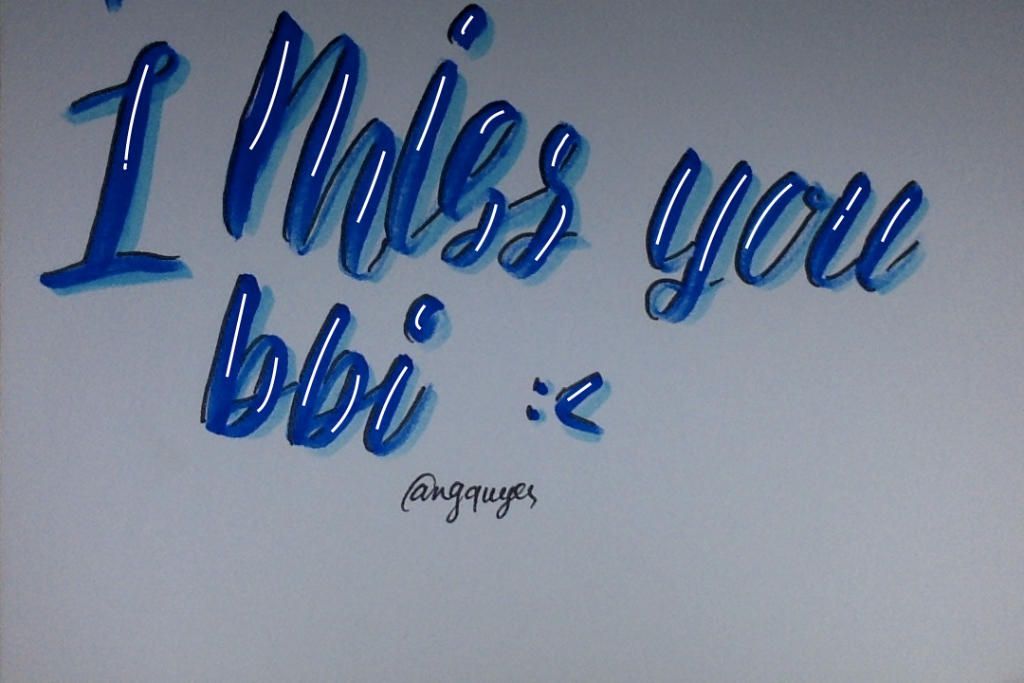 I miss you
bbi :<
@ngquyes